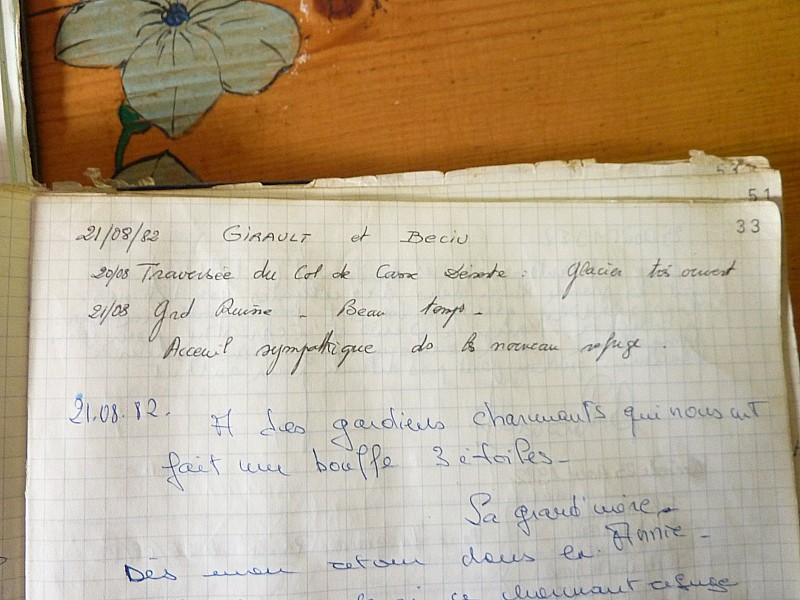 51
33
21/08/82 GIRAULT et BECIU
20/08 Traversée du Col de Casse Déserte : glacier très ouvert
21/08 Grd Ruine - Beau temps -
Acceuil sympathique ds le nouveau refuge.
21.08.82. A des gardiens charmants qui nous ont
fait une bouffe 3 étoiles -
Sa grand'mère -
Annie -
Dès mon retour dans
ce charmant refuge